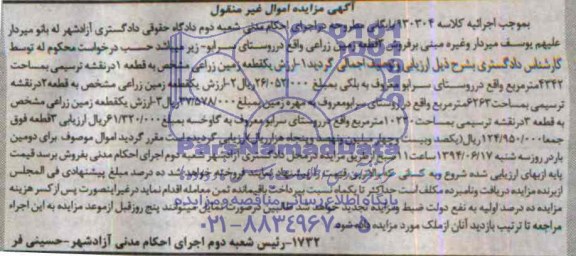 آگهی مزایده اموال غیر منقول
بموجب اجرائیه کلاسه ۹۳۰۳۰۴ بایگانی مطروحه در اجرای احکام مدنی شعبه دوم دادگاه حقوقی دادگستری آزادشهر له بانو میردار
علیهم یوسف میردار وغیره مبنی برفروش ۳قطعه زمین زراعی واقع درروستای سرابو- زیر میباشد حسب درخواست محکوم له توسط
کارشناس دادگستری بشرح ذیل ارزیابی وتوصیف اجمالی گردید ۱-ارزش یکقطعه زمین زراعی مشخص به قطعه ۱درنقشه ترسیمی بمساحت
۴۳۴۲مترمربع واقع درروستای سرابو معروف به بلکی بمبلغ ۲۶/۰۵۲/۰۰۰ریال۲-ارزش یکقطعه زمین زراعی مشخص به قطعه ۲درنقشه
ترسیمی بمساحت۶۲۶۳مترمربع واقع درروستای سرابومعروف به مهره زمین بمبلغ ۳۷/۵۷۸/۰۰۰ریال۳-ارزش یکقطعه زمین زراعی مشخص
به قطعه ۳درنقشه ترسیمی بمساحت ۱۰۲۲۰مترمربع واقع درروستای سرابو معروف به گاوخسه بمبلغ ۶۱/۳۲۰/۰۰۰ریال ارزیابی ۳قطعه فوق
جمعا۱۲۴/۹۵۰/۰۰۰ریال(یکصد وبیست وچهار میلیون ونهصد وپنجاه هزارریال)ارزیابی گردیده است مقرر گردید اموال موصوف برای دومین
بار درروزسه شنبه ۱۳۹۴/۰۶/۱۷ساعت۱۱صبح ازطریق مزایده درمحل دادگستری آزادشهر شعبه دوم اجرای احکام مدنی بفروش برسد قیمت
پایه ازبهای ارزیابی شده شروع وبه کسانی که بالاترین قیمت را پیشنهاد نمایند فروخته خواهد شد ده درصد مبلغ پیشنهادی فی المجلس
ازبرنده مزایده دریافت ونامبرده مکلف است حداکثر تا یکماه نسبت بپرداخت باقیمانده ثمن معامله اقدام نماید درغیراینصورت پس ازکسر هزینه
مزایده ده درصد اولیه به نفع دولت ضبط ومزایده تجدید خواهد شد طالبین درصورت تمایل میتوانند پنج روزقبل ازموعد مزایده به این اجراء
مراجعه تا ترتیب بازدید آنان ازملک مورد مزایده داده شود
۱۷۳۲-رئیس شعبه دوم اجرای احکام مدنی آزادشهر-حسینی فر
ParsNamadData
پایگاه اطلاع رسانی مناقصه و مزایده
۰۲۱-۸۸۳۴۹۶۷۰-۵